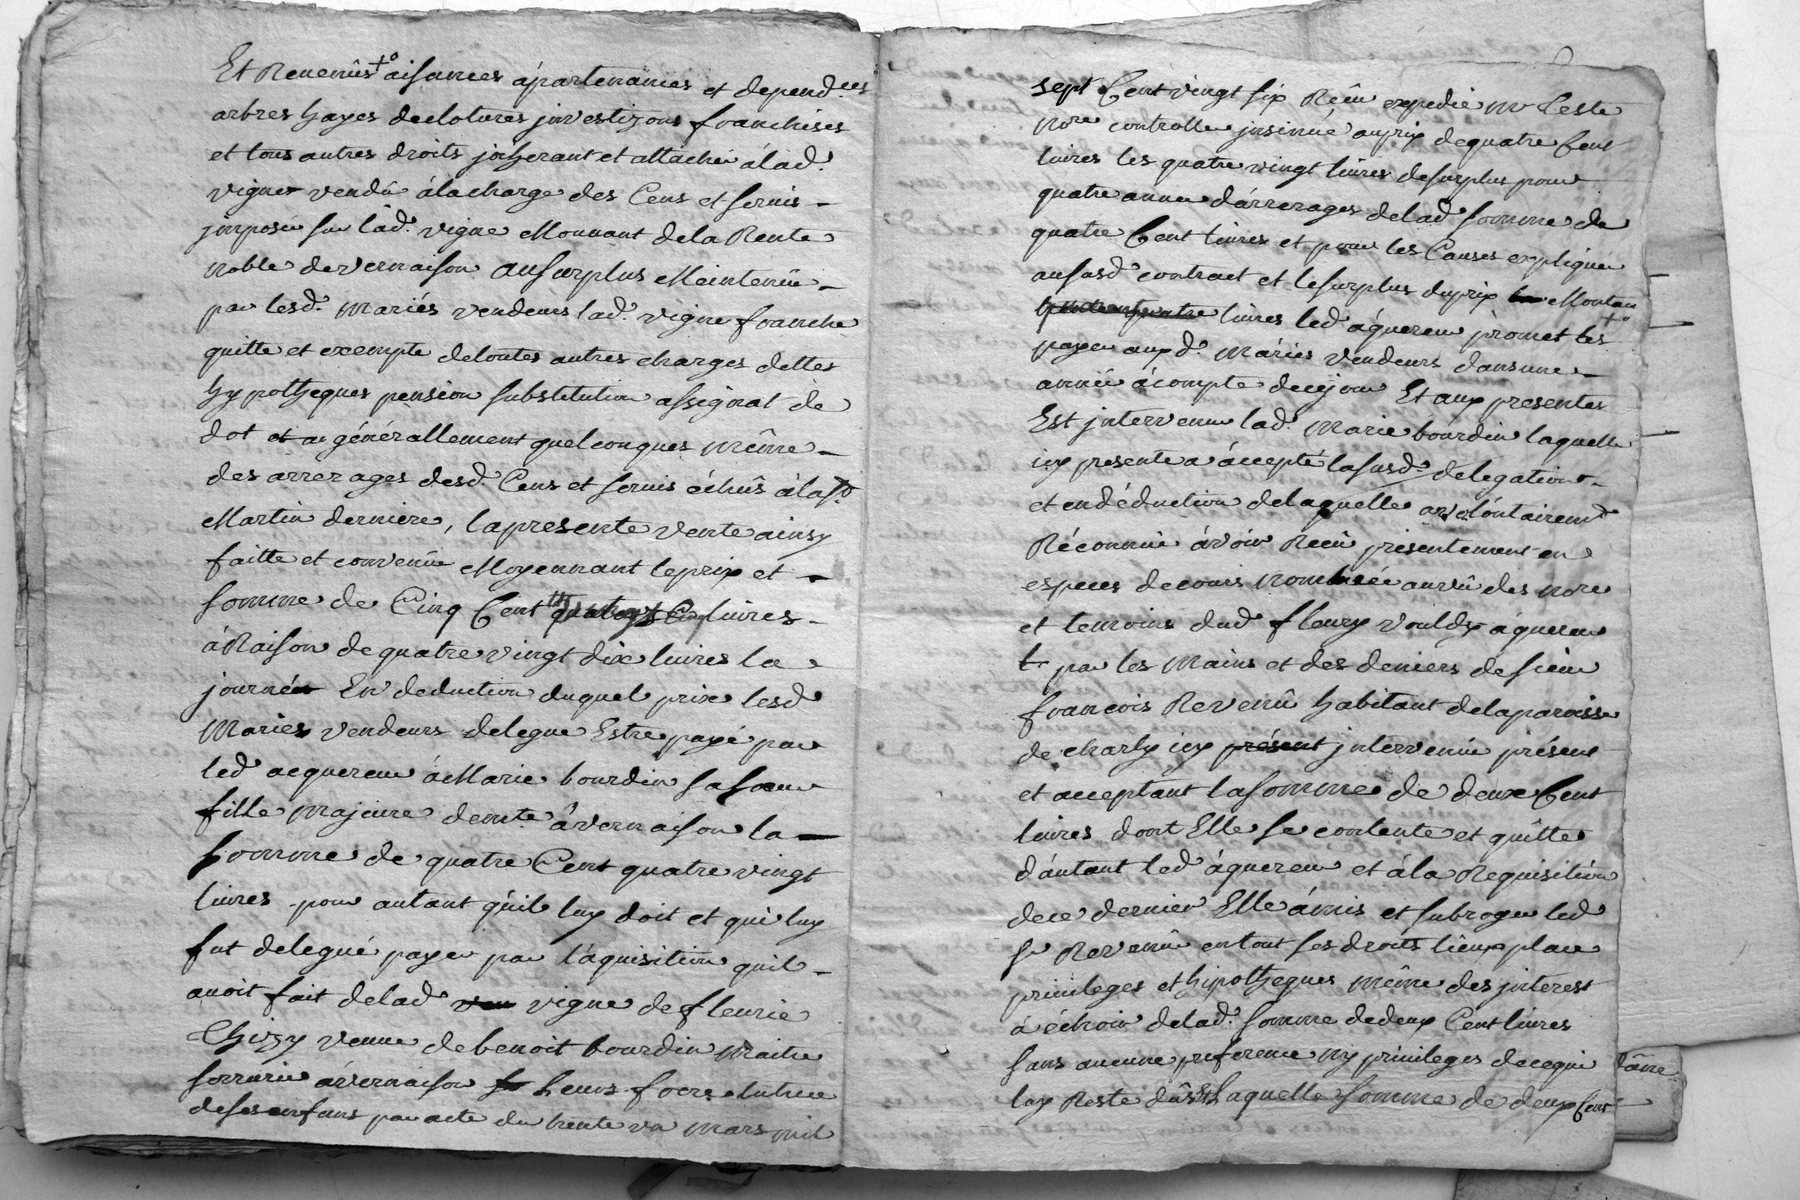 Et Revenûs +° aisances ápartenances et depend.ces
arbres hayes declotures jnvestizons franchises
et tous autres droits jnherant et attachéé álad.
vigne vendû álacharge des Cens et servis
jmposéé su lad. vigne Mouvant dela Rente
noble devernaison ausurplus Maintenüe
par lesd. mariés vendeurs lad. vigne franche
quitte et exempte detoutes autres charges dettes
hypotheques pension substitution assignat de
dot et generallement quelconques même
des arrerages desd. Cens et servis échûs àla st
Martin derniere, lapresente vente ainsy
faitte et convenüe Moyennant leprix et
somme de Cinq Cent livres
à Raison de quatre vingt dix livres la
journéé En deduction duquel prix lesd
Mariés vendeurs delegue Estre payé par
led acquereur à Marie bourdin sa sœur
fille majeure demte. àvernaison la
somme de quatre Cent quatre vingt
livres pour autant quil luy doit et qui luy
fut delegué payer par láquisition quil
avoit fait delad ven vigne de fleurie
Chizy veuve debenoit bourdin maitre
serrurie àvernaison heurs foere tutrice
deses enfans par acte du trente un mars mil
sept Cent vingt six Réçu expedié Me Teste
nore controllé jnsinué auprix dequatre Cent
livres les quatre vingt livres desurplus pour
quatre année dárrerages delad. somme de
quatre Cent livres et pour les Causes expliquéé
aususd contract et lesurplus duprix Montant
livres led áquereur promet les +°
payer aux d. máriés vendeurs dans une
année àcompte decejour Et aux presentes
Est jntervenu lad. Marie bourdin laquelle
icy presente a áccepté lasusd. delegation
et en déduction delaquelle a volóntairemt
Réconnue ávoir Reçu présentement en
especes decours nombréé auvû des nore
et temoins dud fleury vouldy áquereur
par les mains et des deniers de sieur
francois Revenû habitant delaparoisse
de charly icy présent jntervenüe présent
et acceptant lasomme de deux Cent
livres dont Elle se contente et quitte
dáutant led áquereur et ála Requisition
dece dernier Elle ámis et subrogée led
sr Revenû en tout ses droits lieux place
privileges et hipotheques même des jnterest
à échoir delad. somme dedeux Cent livres
sans aucune preference ny privileges decequi
luy Reste dûs Laquelle somme de deux Cent